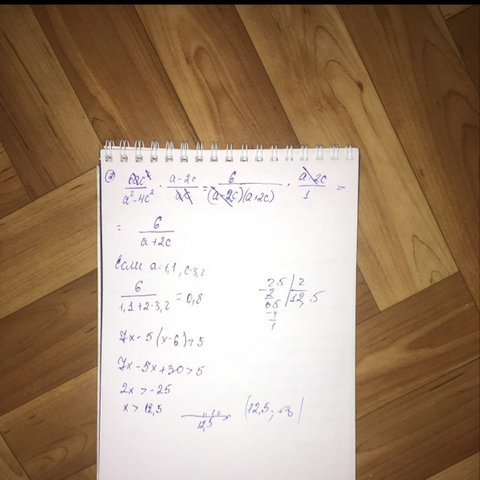 a²-4c² · a-2c = 6 / (a-2c)(a+2c) · a-2c / 1 =
= 6 / a+2c
Если a=1,1, c=3,2
6 / 1,1+2·3,2 = 0,8
7x-5(x-6)>5
7x-5x+30>5
2x>-25
x>12,5
12,5
(12,5; +∞)
25 | 2
12,5